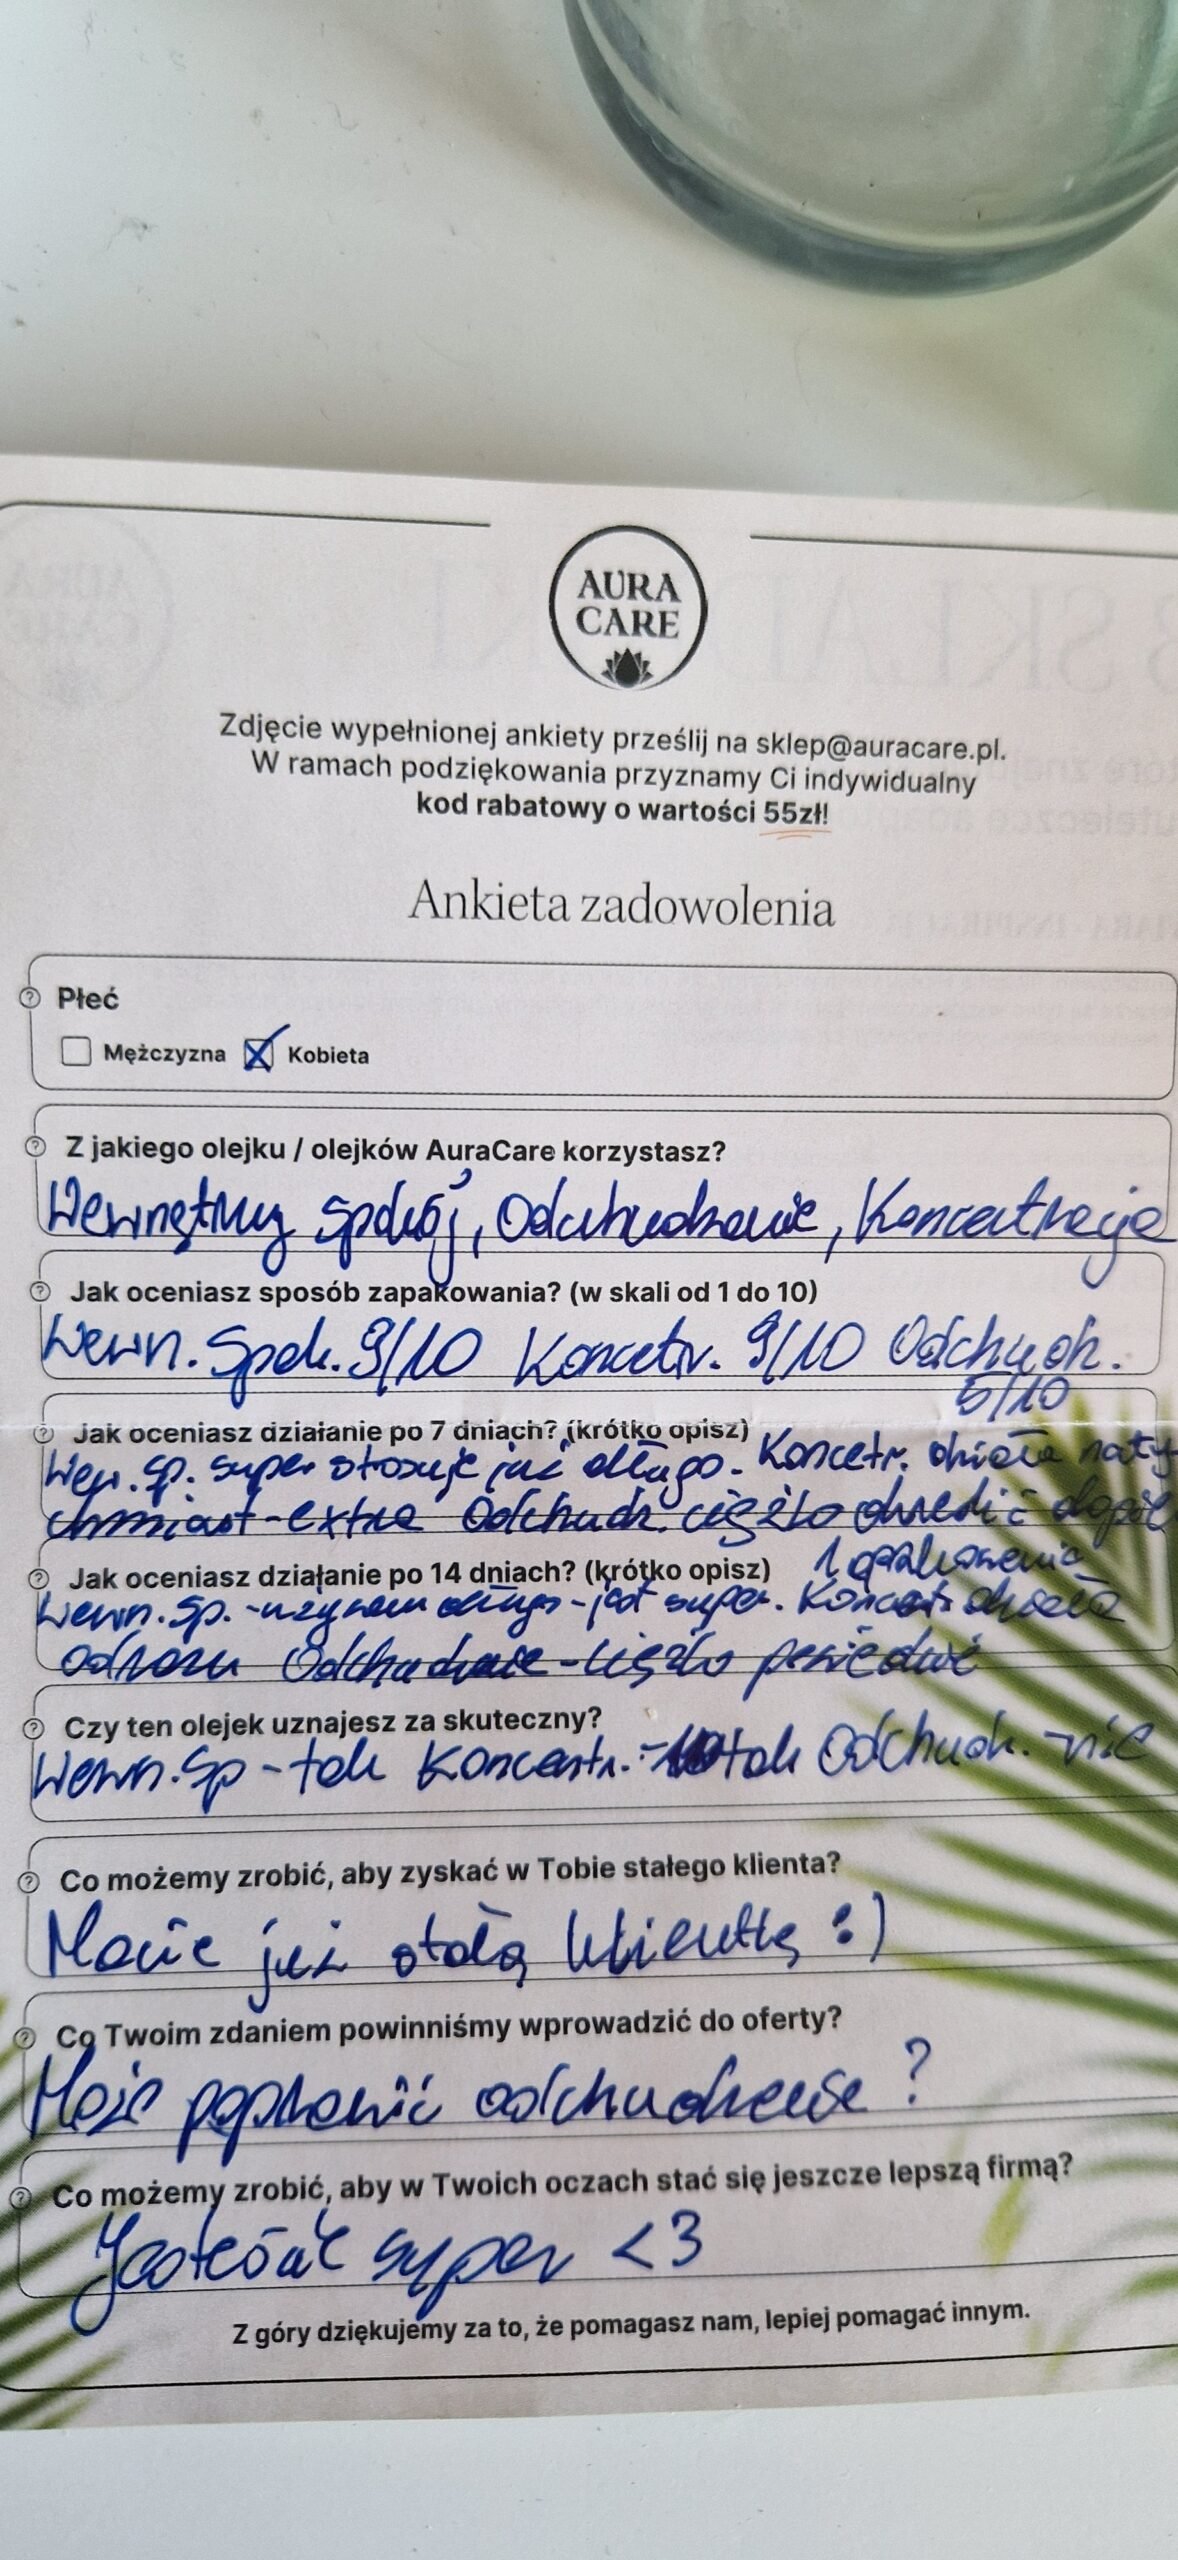 AURA
CARE
Zdjęcie wypełnionej ankiety prześlij na sklep@auracare.pl.
W ramach podziękowania przyznamy Ci indywidualny
kod rabatowy o wartości 55zł!
Ankieta zadowolenia
Płeć
Mężczyzna Kobieta
Z jakiego olejku / olejków AuraCare korzystasz?
Wewnętrzny spokój, Odchudzanie, Koncentracja
Jak oceniasz sposób zapakowania? (w skali od 1 do 10)
Wewn. Spok. 9/10 Koncetr. 9/10 Odchudz.
5/10
Jak oceniasz działanie po 7 dniach? (krótko opisz)
Wew. sp. super stosuję już długo. Koncetr. działa naty-
chmiast - extra Odchudz. ciężko określić dopie
1 opakowanie
Jak oceniasz działanie po 14 dniach? (krótko opisz)
Wewn. sp. - używam długo - jest super. Koncetr. działa
od razu Odchudzanie - ciężko powiedzieć
Czy ten olejek uznajesz za skuteczny?
Wewn. Sp - tak Koncentr. - tak Odchudz. - nie
Co możemy zrobić, aby zyskać w Tobie stałego klienta?
Macie już stałą klientkę :)
Co Twoim zdaniem powinniśmy wprowadzić do oferty?
Może poprawić odchudzanie ?
Co możemy zrobić, aby w Twoich oczach stać się jeszcze lepszą firmą?
Jesteście super <3
Z góry dziękujemy za to, że pomagasz nam, lepiej pomagać innym.